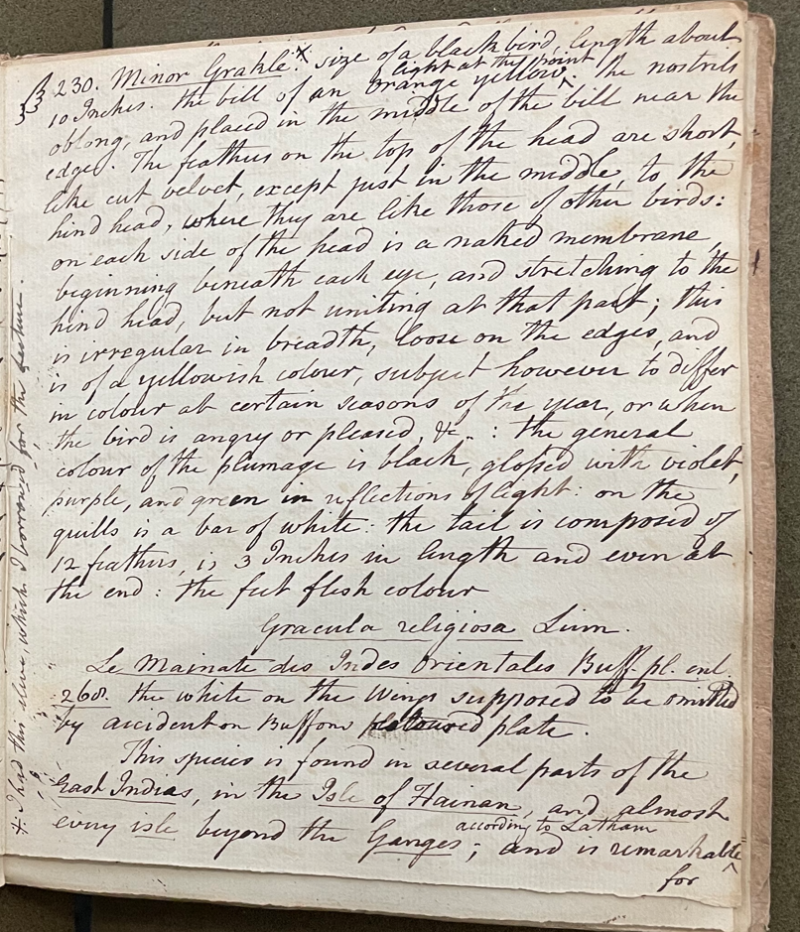 230. Minor Grakle.× size of a blackbird, length about
light at the point
10 Inches. the bill of an orange yellow ^. the nostrils
oblong, and placed in the middle of the bill near the
edge. The feathers on the top of the head are short,
like cut velvet, except just in the middle, to the
hind head, where they are like those of other birds:
on each side of the head is a naked membrane,
beginning beneath each eye, and stretching to the
hind head, but not uniting at that part; this
is irregular in breadth, loose on the edges, and
is of a yellowish colour, subject however to differ
in colour at certain seasons of the year, or when
the bird is angry or pleased, &c. : the general
colour of the plumage is black, glossed with violet,
purple, and green in reflections of light: on the
quills is a bar of white: the tail is composed of
12 feathers, is 3 Inches in length and even at
the end: the feet flesh colour
Gracula religiosa Linn.
Le Mainate des Indes Orientales Buff. pl. enl.
268. the white on the Wings supposed to be omitted
by accident on Buffons coloured plate.
This species is found in several parts of the
East Indias, in the Isle of Hainan, and almost
every isle beyond the Ganges;
according to Latham
and is remarkable ^
for
I had this alive, which I borrowed for the